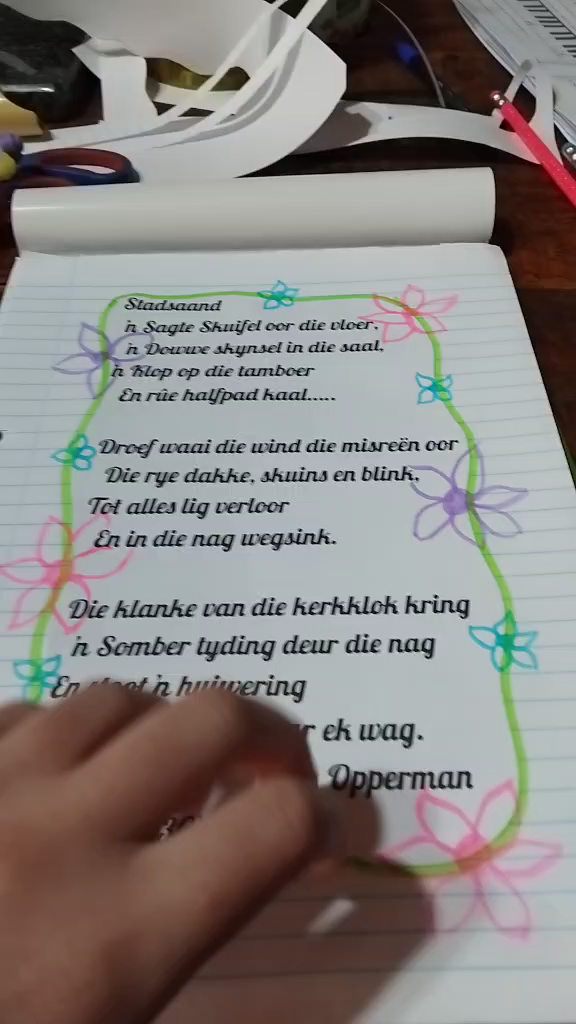 Stadsaand
'n Sagte Skuifel oor die vloer,
'n Douwe skynsel in die saal,
'n Klop op die tamboer
En rûe halfpad kaal.....
Droef waai die wind die misreën oor
Die rye dakke, skuins en blink,
Tot alles lig verloor
En in die nag wegsink.
Die klanke van die kerkklok kring
'n Somber tyding deur die nag
En 'n huiwering
ek wag.
Opperman